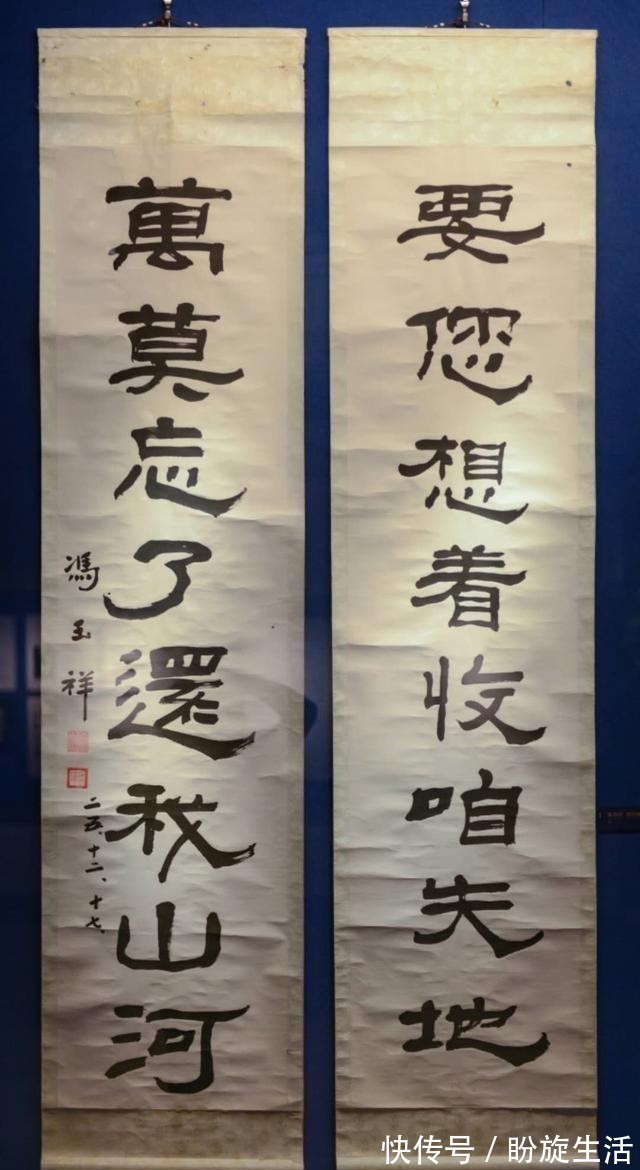 要您想着收咱失地
萬莫忘了還我山河
馮玉祥
二五、十二、十七、
快传号 / 盼旋生活